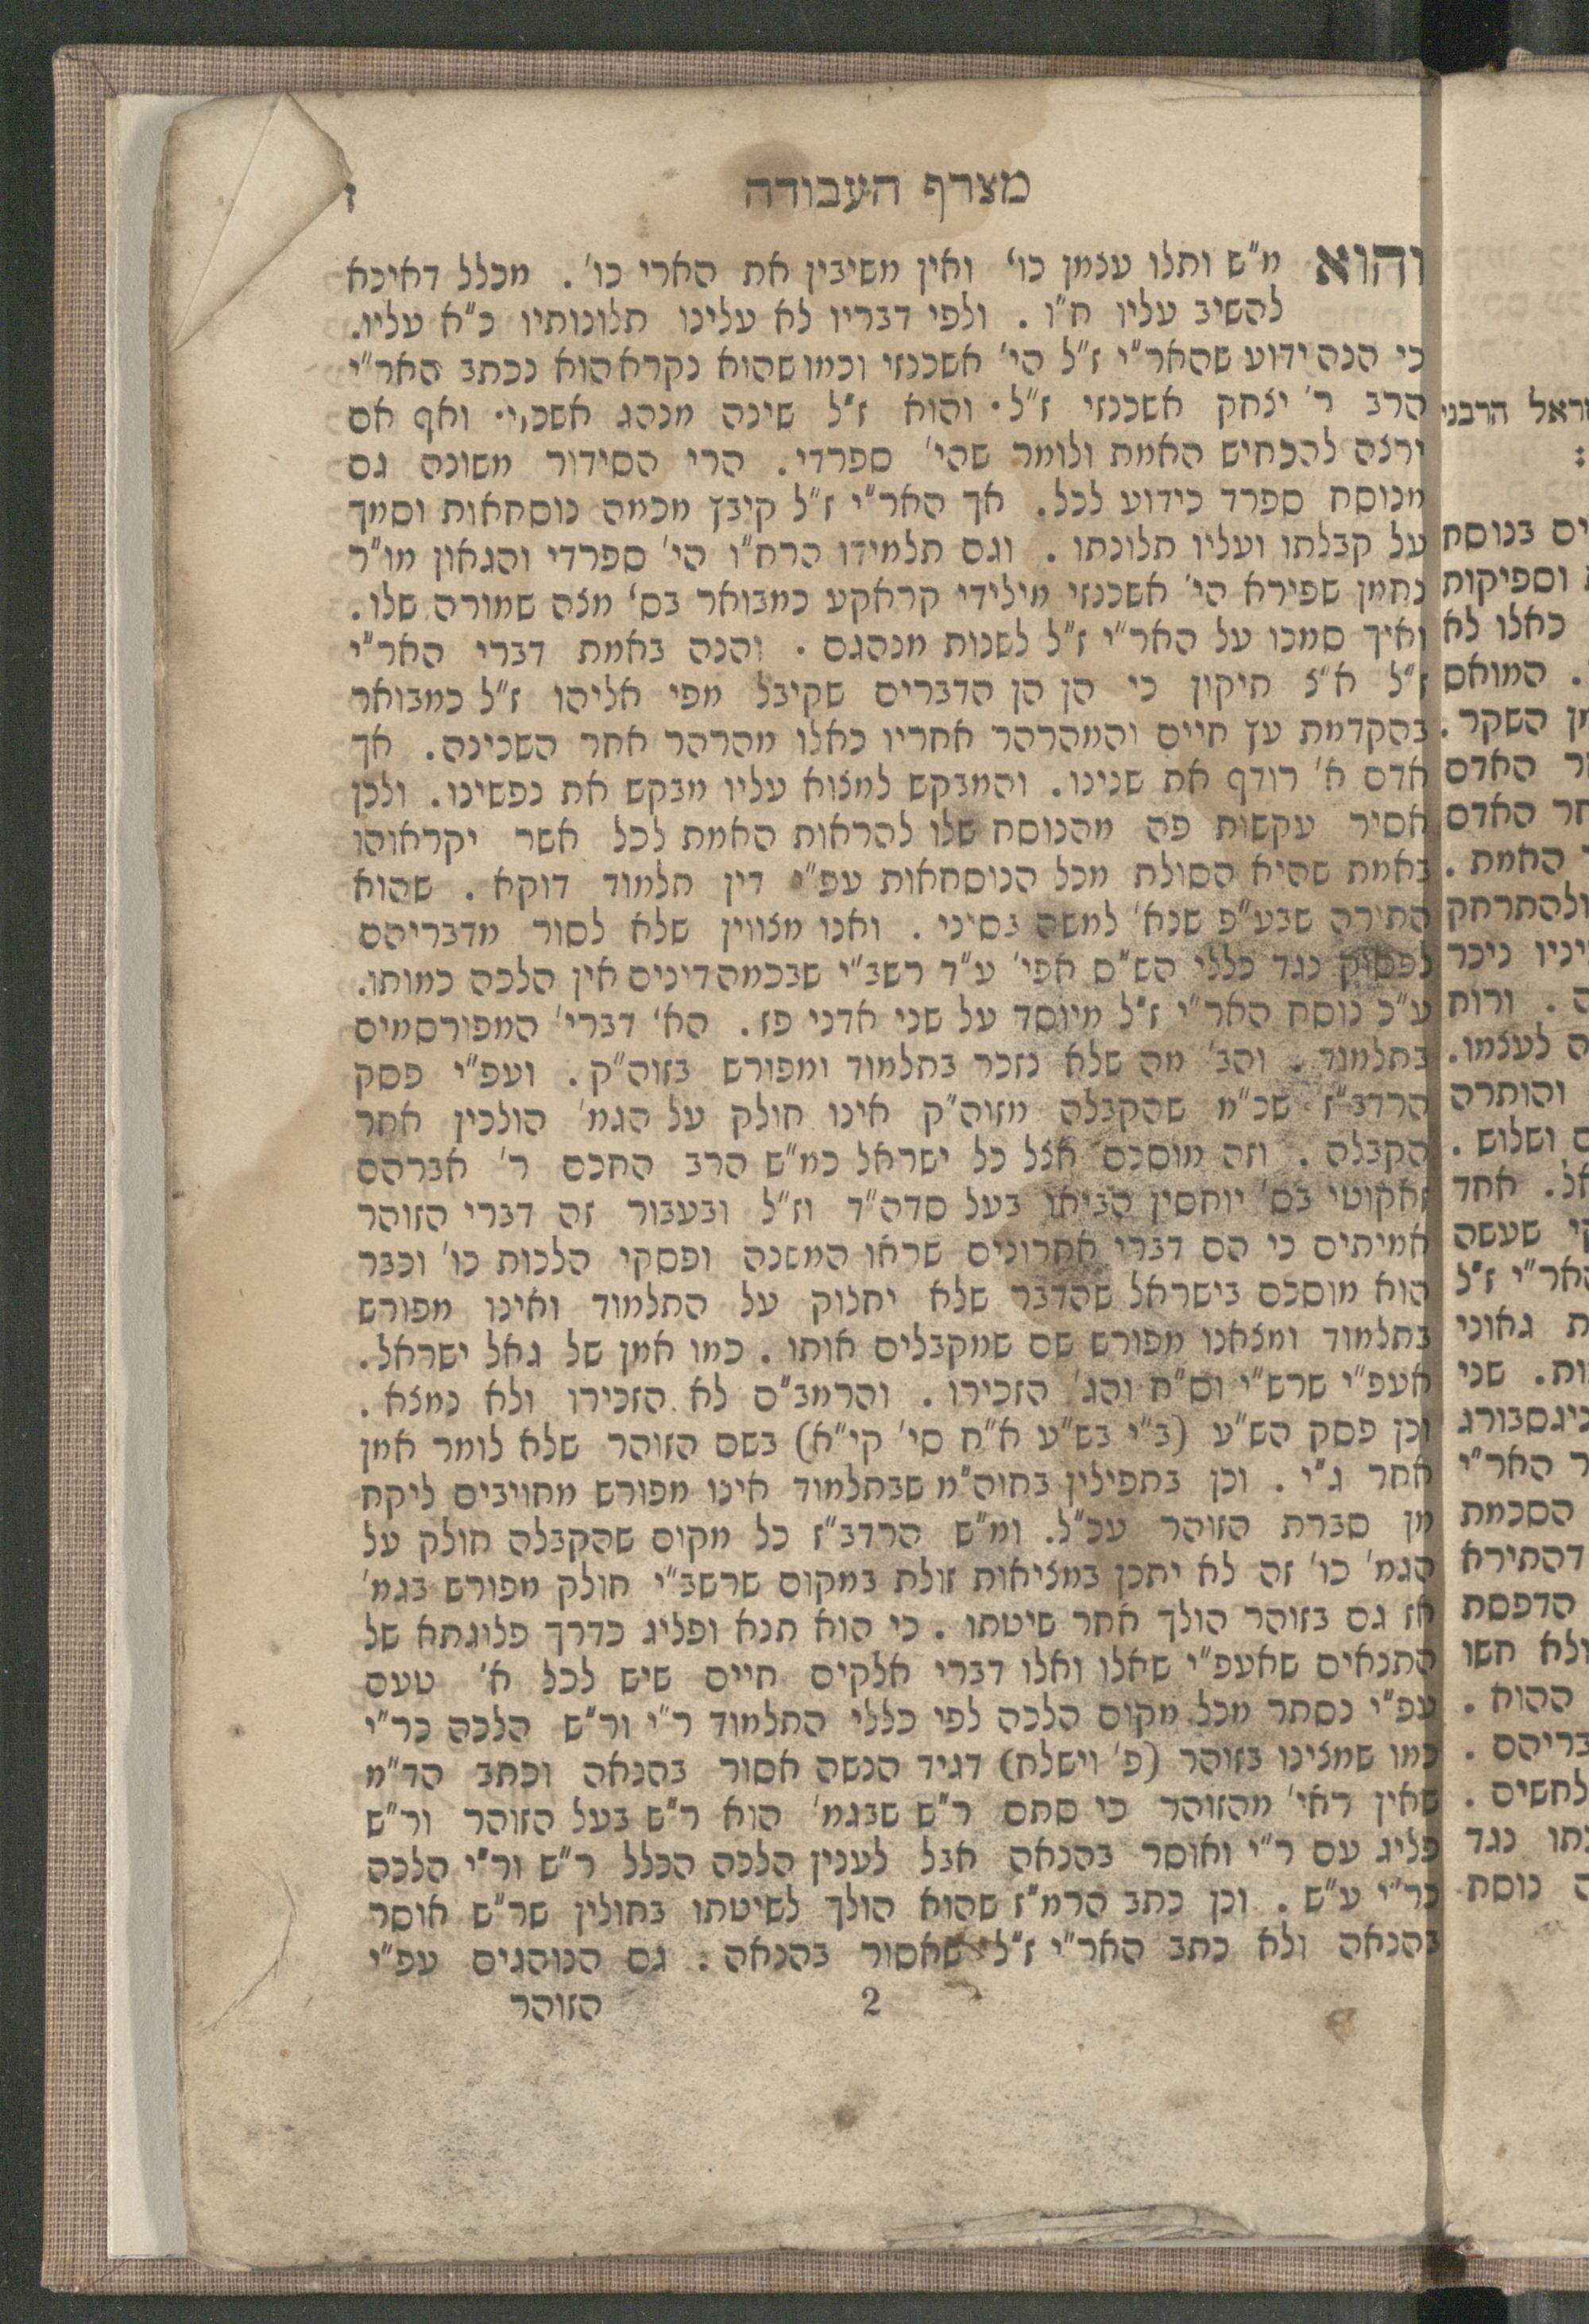 מצרף העבודה
ז
והוא מ"ש ותלו עצמן כו' ואין משיבין את הארי כו'. מכלל דאיכא
להשיב עליו ח"ו. ולפי דבריו לא עלינו תלונותיו כ"א עליו.
כי הנה ידוע שהאר"י ז"ל הי' אשכנזי וכמו שהוא נקרא הוא נכתב האר"י
הרב ר' יצחק אשכנזי ז"ל. והוא ז"ל שינה מנהג אשכ,י. ואף אם
ירצה להכחיש האמת ולומר שהי' ספרדי. הרי הסידור משונה גם
מנוסח ספרד כידוע לכל. אך האר"י ז"ל קיבץ מכמה נוסחאות וסמך
על קבלתו ועליו תלונתו. וגם תלמידו הרח"ו הי' ספרדי והגאון מו"ר
נחמן שפירא הי' אשכנזי מילידי קראקע כמבואר בס' מצה שמורה שלו.
ואיך סמכו על האר"י ז"ל לשנות מנהגם. והנה באמת דברי האר"י
ז"ל א"צ תיקון כי הן הן הדברים שקיבל מפי אליהו ז"ל כמבואר
בהקדמת עץ חיים והמהרהר אחריו כאלו מהרהר אחר השכינה. אך
אדם א' רודף את שנינו. והמבקש למצוא עליו מבקש את נפשינו. ולכן
אסיר עקשות פה מהנוסח שלו להראות האמת לכל אשר יקראוהו
באמת שהיא הסולת מכל הנוסחאות עפ"י דין תלמוד דוקא. שהוא
התורה שבע"פ שנא' למשה בסיני. ואנו מצווין שלא לסור מדבריהם
לפסוק נגד כללי הש"ס אפי' ע"ד רשב"י שבכמה דינים אין הלכה כמותו.
ע"כ נוסח האר"י ז"ל מיוסד על שני אדני פז. הא' דברי' המפורסמים
בתלמוד. והב' מה שלא נזכר בתלמוד ומפורש בזוה"ק. ועפ"י פסק
הרדב"ז שכ"מ שהקבלה מזוה"ק אינו חולק על הגמ' הולכין אחר
הקבלה. וזה מוסכם אצל כל ישראל כמ"ש הרב החכם ר' אברהם
זאקוטי בס' יוחסין הביאו בעל סדה"ד וז"ל ובעבור זה דברי הזוהר
אמיתים כי הם דברי אחרונים שראו המשנה ופסקי הלכות כו' וכבר
הוא מוסכם בישראל שהדבר שלא יחלוק על התלמוד ואינו מפורש
בתלמוד ומצאנו מפורש שם שמקבלים אותו. כמו אמן של גאל ישראל.
אעפ"י שרש"י וס"ח והג' הזכירו. והרמב"ם לא הזכירו ולא נמצא.
וכן פסק הש"ע (ב"י בש"ע א"ח סי' קי"א) בשם הזוהר שלא לומר אמן
אחר ג"י. וכן בתפילין בחוה"מ שבתלמוד אינו מפורש מחויבים ליקח
מן סברת הזוהר עכ"ל. ומ"ש הרדב"ז כל מקום שהקבלה חולק על
הגמ' כו' זה לא יתכן במציאות זולת במקום שרשב"י חולק מפורש בגמ'
אז גם בזוהר הולך אחר שיטתו. כי הוא תנא ופליג כדרך פלוגתא של
התנאים שאעפ"י שאלו ואלו דברי אלקים חיים שיש לכל א' טעם
עפ"י נסתר מכל מקום הלכה לפי כללי התלמוד ר"י ור"ש הלכה כר"י
כמו שמצינו בזוהר (פ' וישלח) דגיד הנשה אסור בהנאה וכתב הד"מ
שאין ראי' מהזוהר כי סתם ר"ש שבגמ' הוא ר"ש בעל הזוהר ור"ש
פליג עם ר"י ואוסר בהנאה אבל לענין הלכה הכלל ר"ש ור"י הלכה
כר"י ע"ש. וכן כתב הרמ"ז שהוא הולך לשיטתו בחולין שר"ש אוסר
בהנאה ולא כתב האר"י ז"ל שאסור בהנאה. גם הנוהגים עפ"י
2
הזוהר
הרבני
:
בנוסח
וספיקות
כאלו לא
. המואס
השקר.
האדם
האדם
האמת.
ולהתרחק
ניכר
. ורוח
לעצמו.
והותרה
ושלוש.
אחד
שעשה
האר"י ז"ל
גאוני
שני
האר"י
הסכמת
דהתירא
הדפסת
ולא חשו
ההוא.
לחשים.
נגד
נוסח